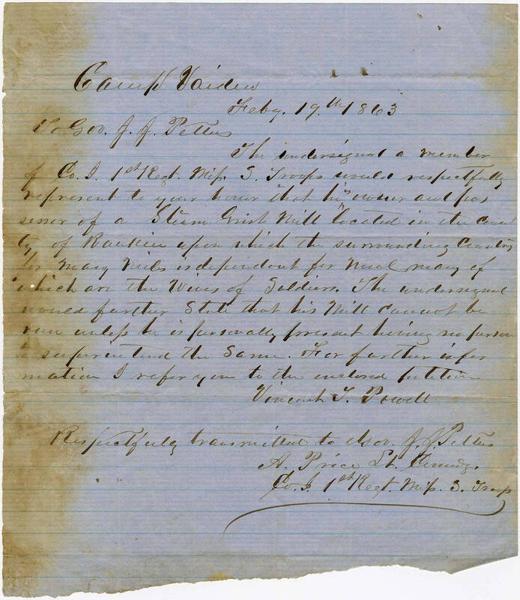 Camp Vaiden
Feby. 19th 1863
To Gov. J. J. Pettus
The undersigned a member
of Co. I 1st Regt. Miss S. Troops would respectfully
represent to your honor that he is owner and pos
sessor of a Steam Grist Mill located in the coun
ty of Rankin upon which the surrounding Country
for many miles is dependent for meal many of
which are the Wives of Soldiers. The undersigned
would further State that his Mill cannot be
run unless he is personally present having no person
to superintend the Same. For further infor
mation I refer you to the enclosed petition
Vincent T. Powell
Respectfully transmitted to Gov. J. J. Pettus
A. Price Lt.
Co. I. 1st Regt. Miss S. Troops